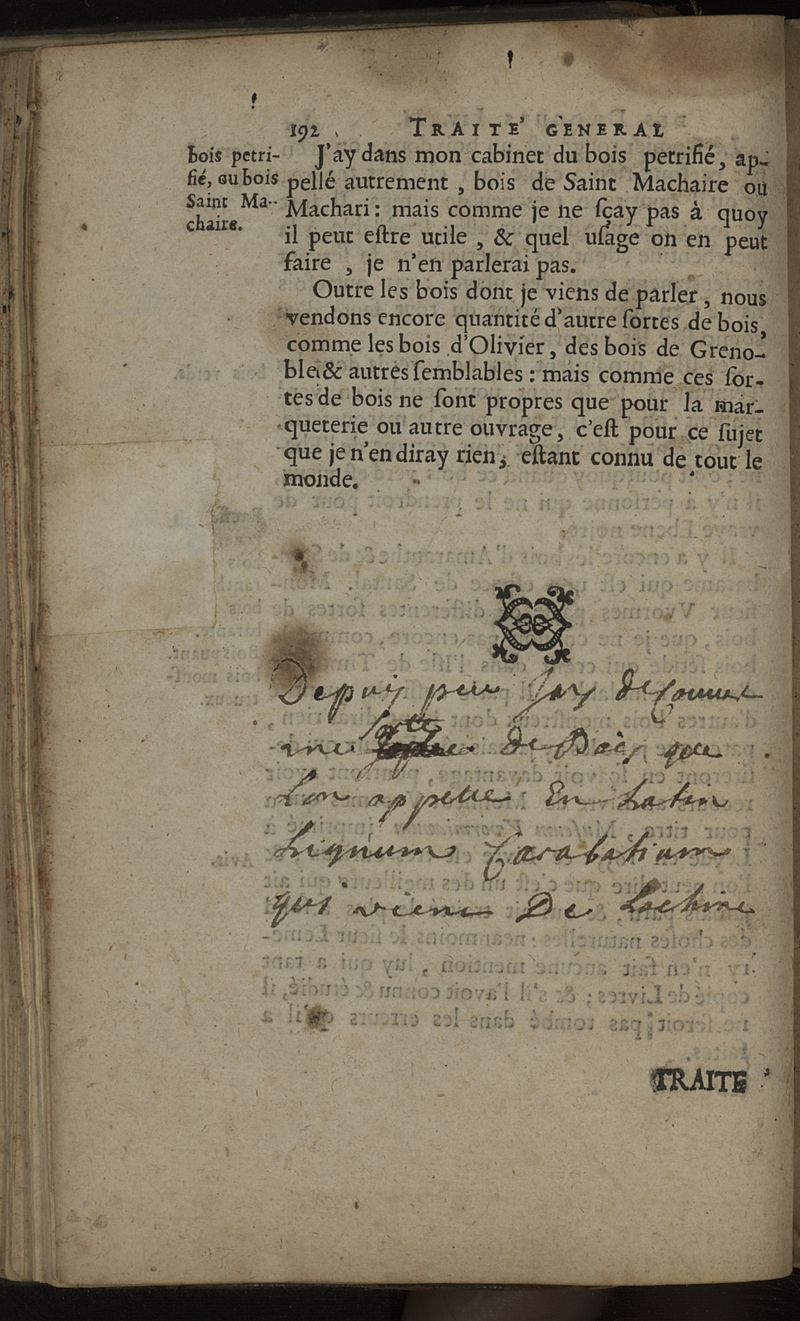 192 TRAITÉ GENERAL
bois petri-
fié, ou bois
Saint Ma-
chaire.
J'ay dans mon cabinet du bois petrifié, ap-
pellé autrement, bois de Saint Machaire ou
Machari: mais comme je ne ſçay pas à quoy
il peut eſtre utile, & quel uſage on en peut
faire, je n'en parlerai pas.
Outre les bois dont je viens de parler, nous
vendons encore quantité d'autre ſortes de bois,
comme les bois d'Olivier, des bois de Greno-
ble, & autres ſemblables: mais comme ces ſor-
tes de bois ne ſont propres que pour la mar-
queterie ou autre ouvrage, c'eſt pour ce ſujet
que je n'en diray rien, eſtant connu de tout le
monde.
Depuis peu Jay
une sorte de Bois que
Lon appelle En Latin
Lignum
qui vient De Lachine
TRAITE